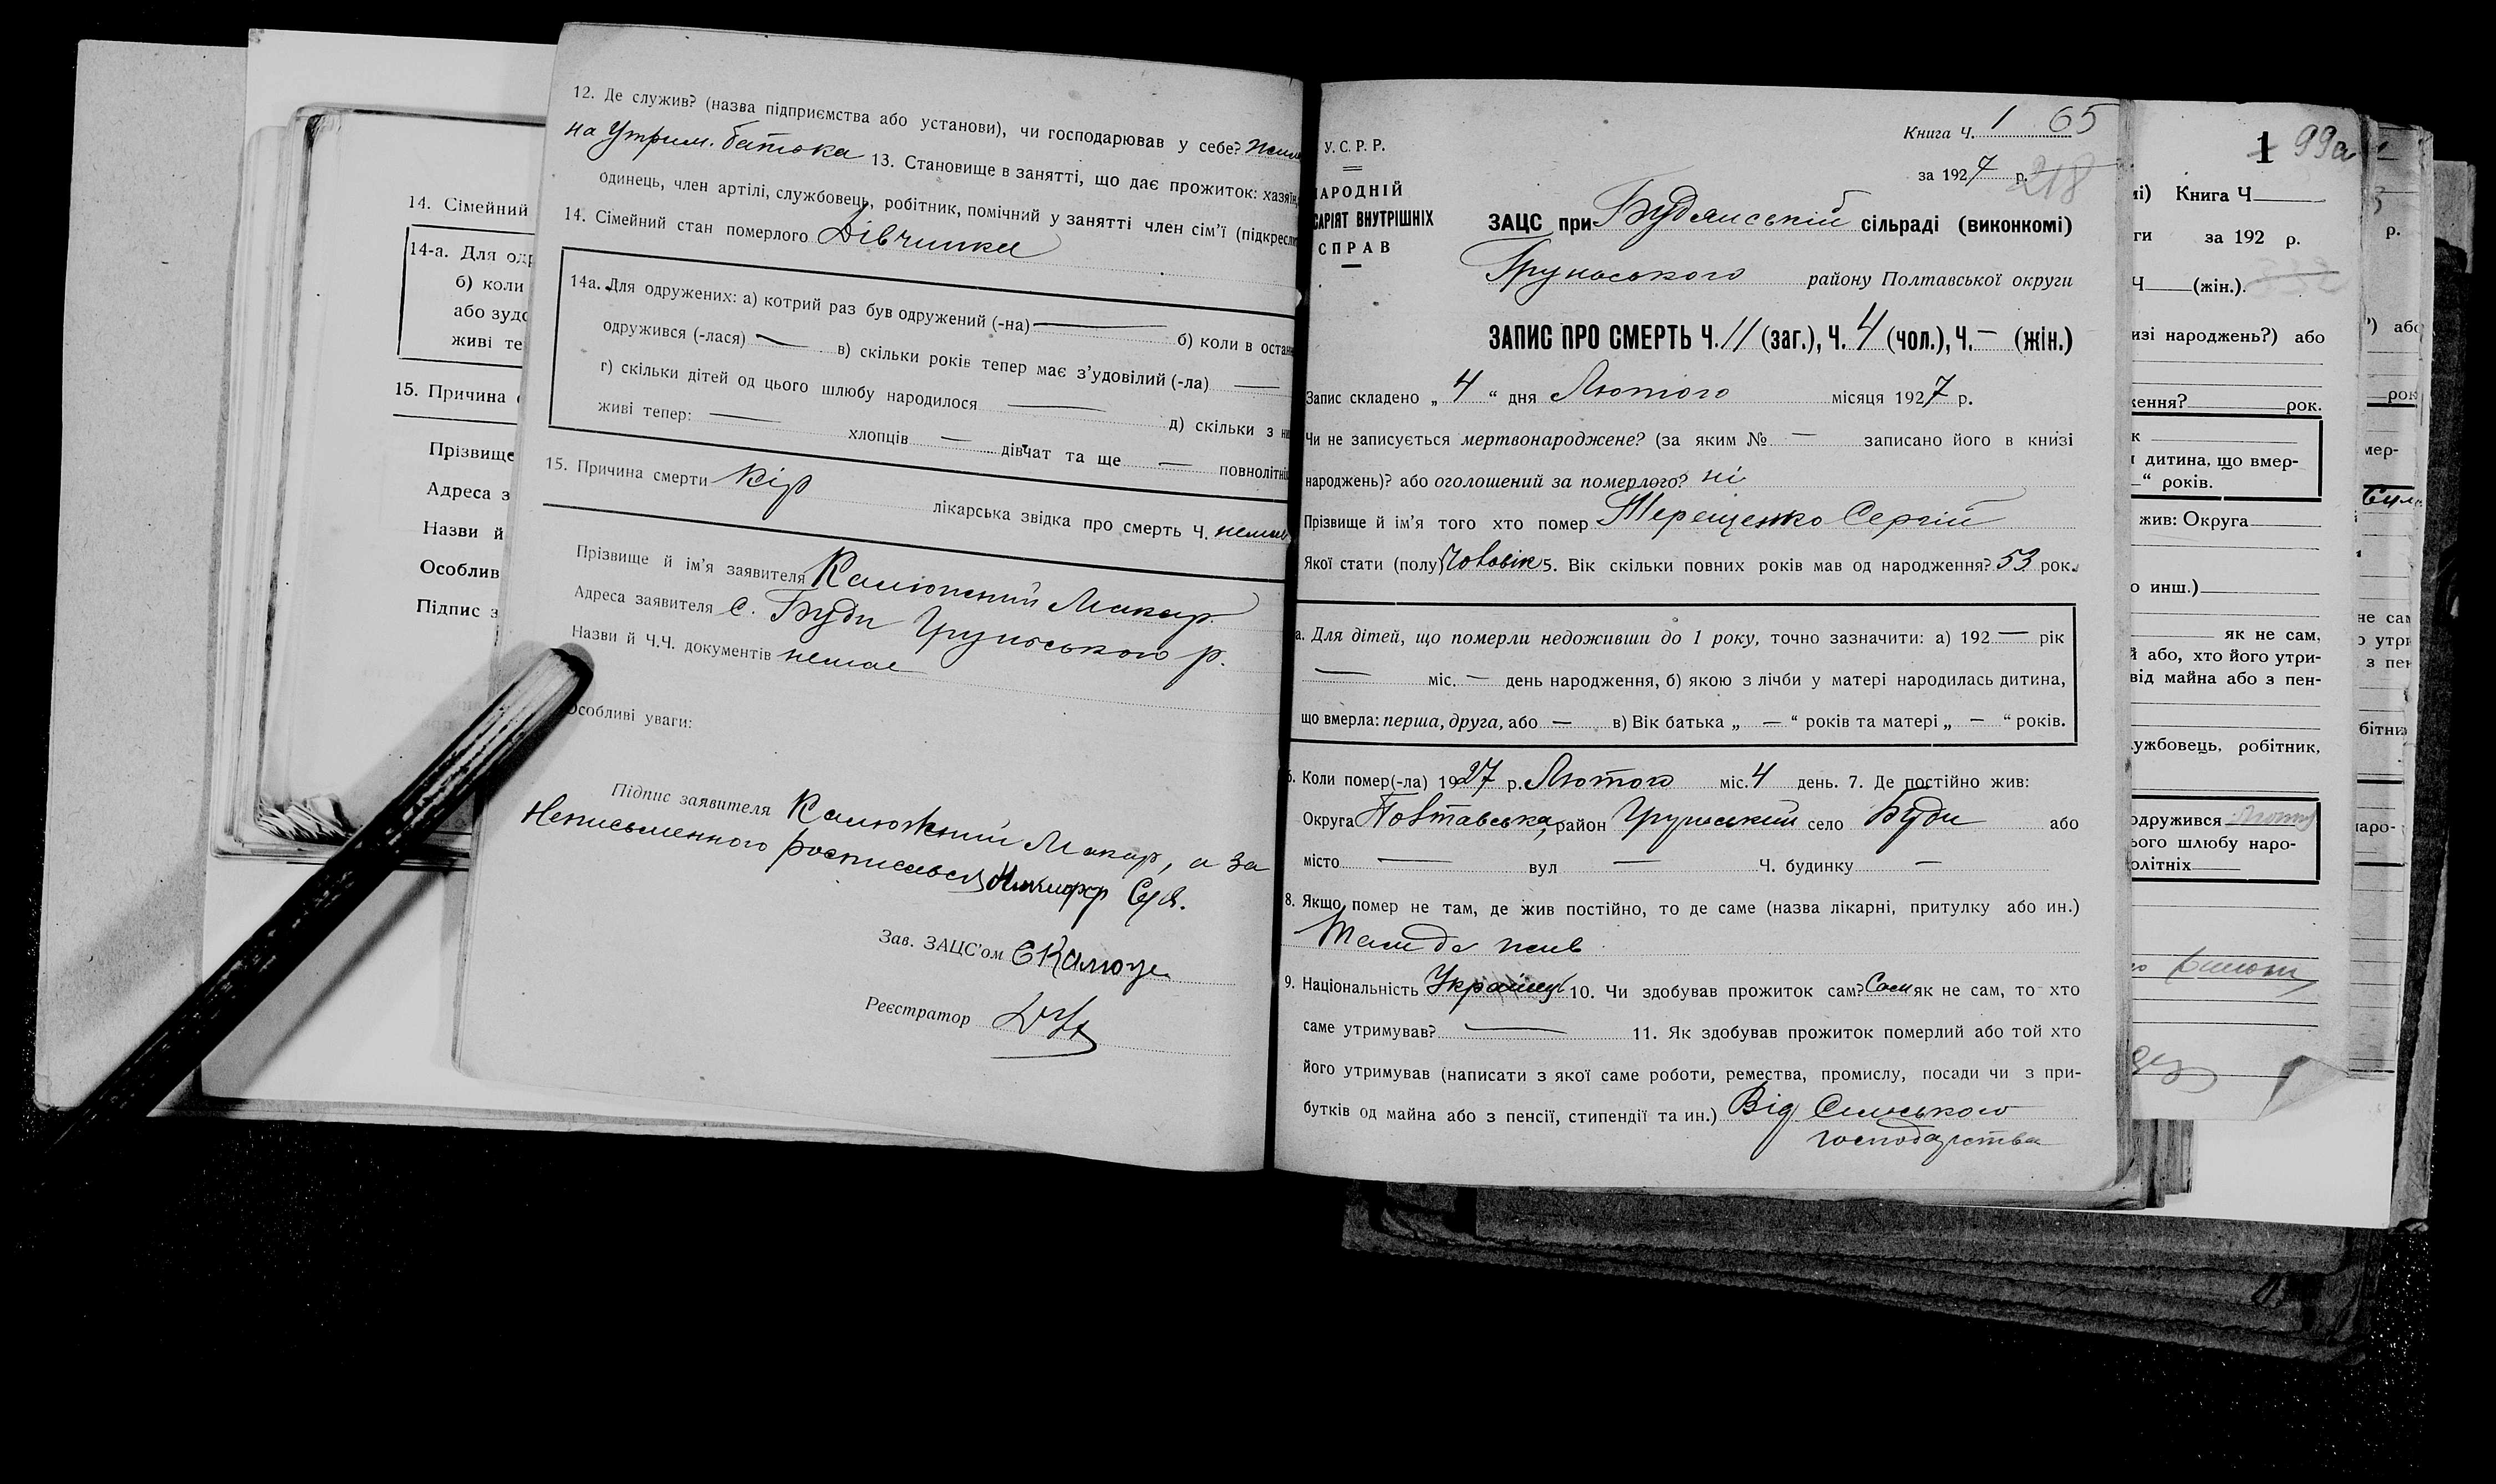 14. Сімейний
14-а. Для од
б) коли
або зудо
живі те
15. Причина
Прізвище
Адреса з
Назви й
Особлив
Підпис з
12. Де служив? (назва підприємства або установи), чи господарював у себе?
на утрим. батька 13. Становище в занятті, що дає прожиток: хазяїн,
одинець, член артілі, службовець, робітник, помічний у занятті член сім'ї (підкресли
14. Сімейний стан померлого Дівчинка
14а. Для одружених: а) котрий раз був одружений (-на) — б) коли в остан
одружився (-лася) — в) скільки років тепер має з'удовілий (-ла) —
г) скільки дітей од цього шлюбу народилося — д) скільки з ни
живі тепер: — хлопців — дівчат та ще — повнолітні
15. Причина смерти кір лікарська звідка про смерть Ч. немає
Прізвище й ім'я заявителя Калюжний Макар
Адреса заявителя с. Буди Грунського р.
Назви й Ч.Ч. документів немає
Особливі уваги:
Підпис заявителя Калюжний Макар, а за
Неписьменного росписався Никифор
Зав. ЗАЦС'ом
Реєстратор
Книга Ч. 1 65
У.С.Р.Р.
за 1927 р. 218
АРОДНІЙ
САРІЯТ ВНУТРІШНІХ
СПРАВ
ЗАЦС при Будянській сільраді (виконкомі)
Грунського району Полтавської округи
ЗАПИС ПРО СМЕРТЬ Ч. 11 (заг.), Ч. 4 (чол.), Ч. — (жін.)
Запис складено „ 4 “ дня Лютого місяця 1927 р.
Чи не записується мертвонароджене? (за яким № — записано його в книзі
народжень)? або оголошений за померлого? ні
Прізвище й ім'я того хто помер Терещенко Сергій
Якої стати (полу) Чоловік 5. Вік скільки повних років мав од народження? 53 рок.
а. Для дітей, що померли недоживши до 1 року, точно зазначити: а) 192 — рік
— міс. — день народження, б) якою з лічби у матері народилась дитина,
що вмерла: перша, друга, або — в) Вік батька „ — “ років та матері „ — “ років.
6. Коли помер(-ла) 1927 р. Лютого міс. 4 день. 7. Де постійно жив:
Округа Полтавська, район Грунський село Буди або
місто — вул — Ч. будинку —
8. Якщо помер не там, де жив постійно, то де саме (назва лікарні, притулку або ин.)
Там де жив
9. Національність 10. Чи здобував прожиток сам? Сам як не сам, то хто
саме утримував? — 11. Як здобував прожиток померлий або той хто
його утримував (написати з якої саме роботи, ремества, промислу, посади чи з при-
бутків од майна або з пенсії, стипендії та ин.) Від Сільського
господарства
1 99а
мі) Книга Ч
ги за 192 р.
Ч (жін.).
изі народжень?) або
ження? рок.
к
дитина, що вмер-
“ років.
жив: Округа
о инш.)
як не сам,
й або, хто його утри-
від майна або з пен-
ужбовець, робітник,
одружився
ього шлюбу наро-
олітніх
р.
) або
рок
мер-
не сам
о утри
з пен
бітни
наро-